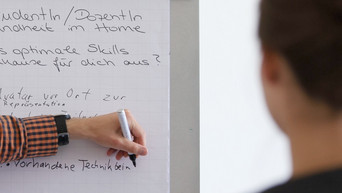 udentIn/DozentIn
ndheit im Home
s optimale Skills
hause für dich aus?
vatar vor Ort zur
Repräsentation
Vorhandene Technik bei